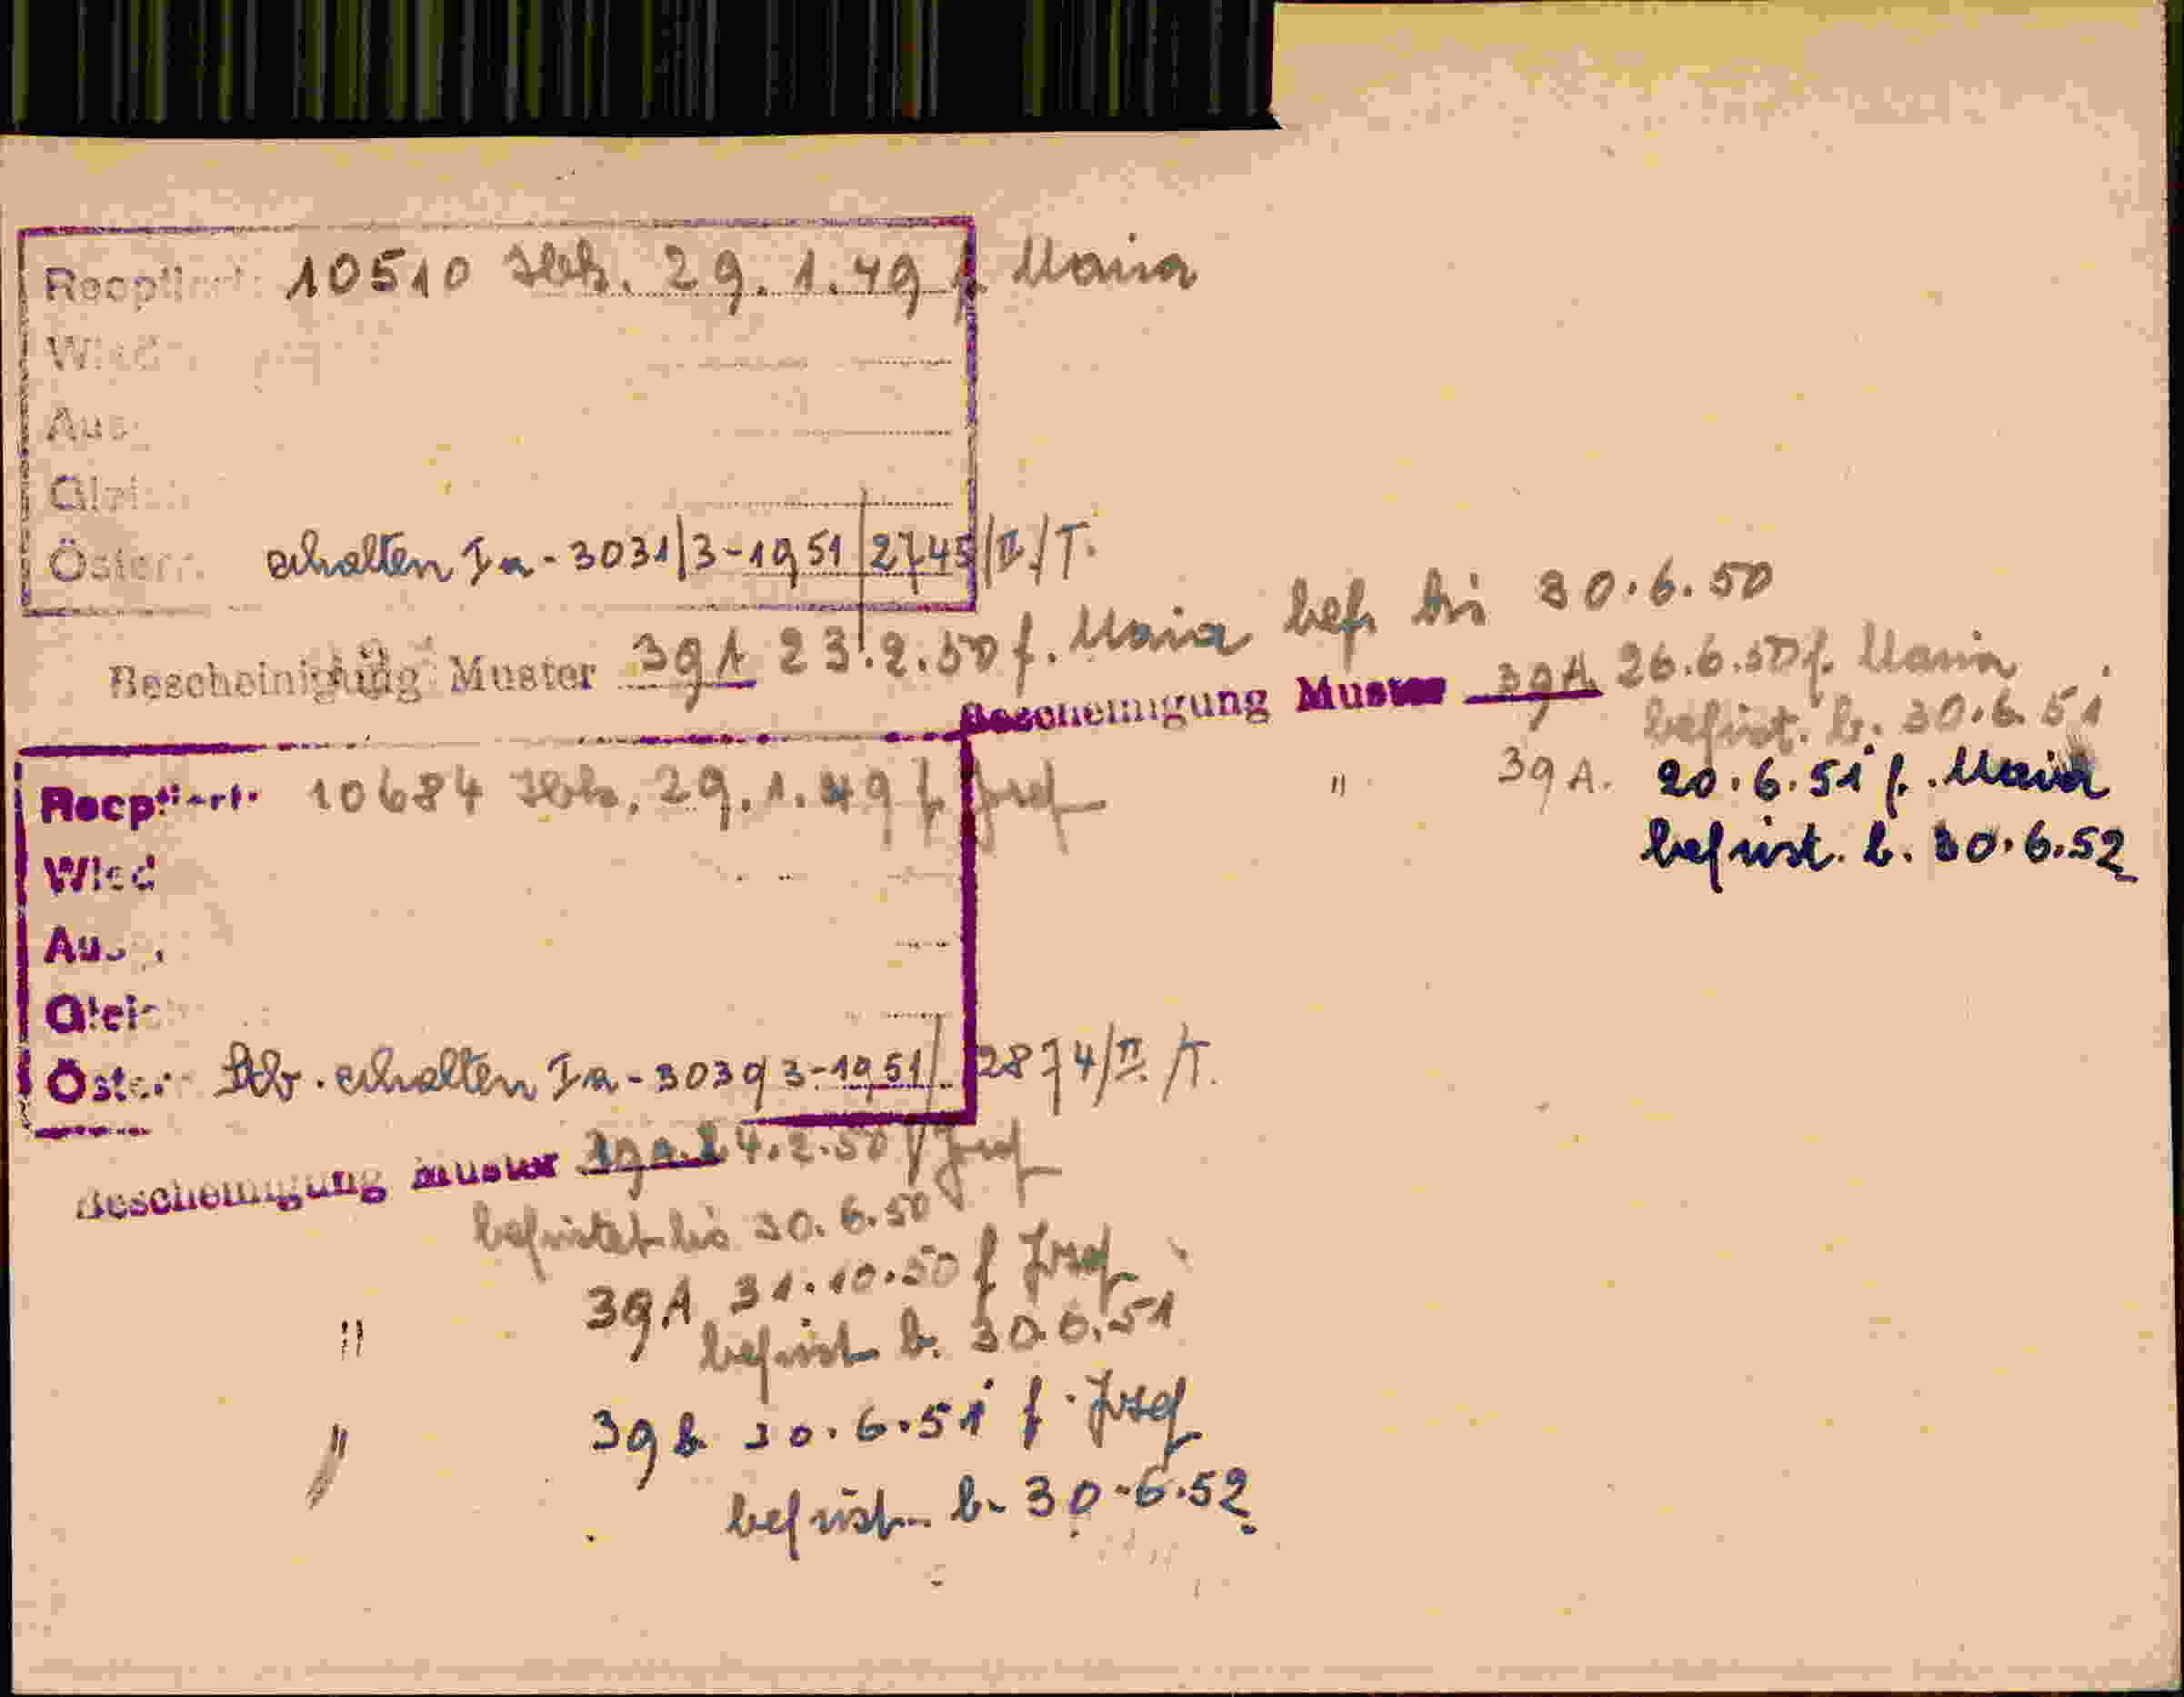 10510 29.1.49 f. Maria
Wied
Aus
Glei
Österr. erhalten Ia-3031/3-1951/2745/II./T.
Bescheinigung Muster 39A 23.2.50 f. Maria bef. bis 30.6.50
Bescheinigung Muster 39A 26.6.50 f. Maria
befrist. b. 30.6.51
" 39A. 20.6.51 f. Maria
befrist. b. 30.6.52
10684 29.1.49 f. Josef
Wied
Aus
Gleic
Öster Stb. erhalten Ia-3039/3-1951/2874/II./T.
Bescheinigung Muster 24.2.50 f Josef
befristet bis 30.6.50
" 39A 31.10.50 f Josef
befrist b. 30.6.51
" 30.6.51 f. Josef
befrist. b. 30.6.52